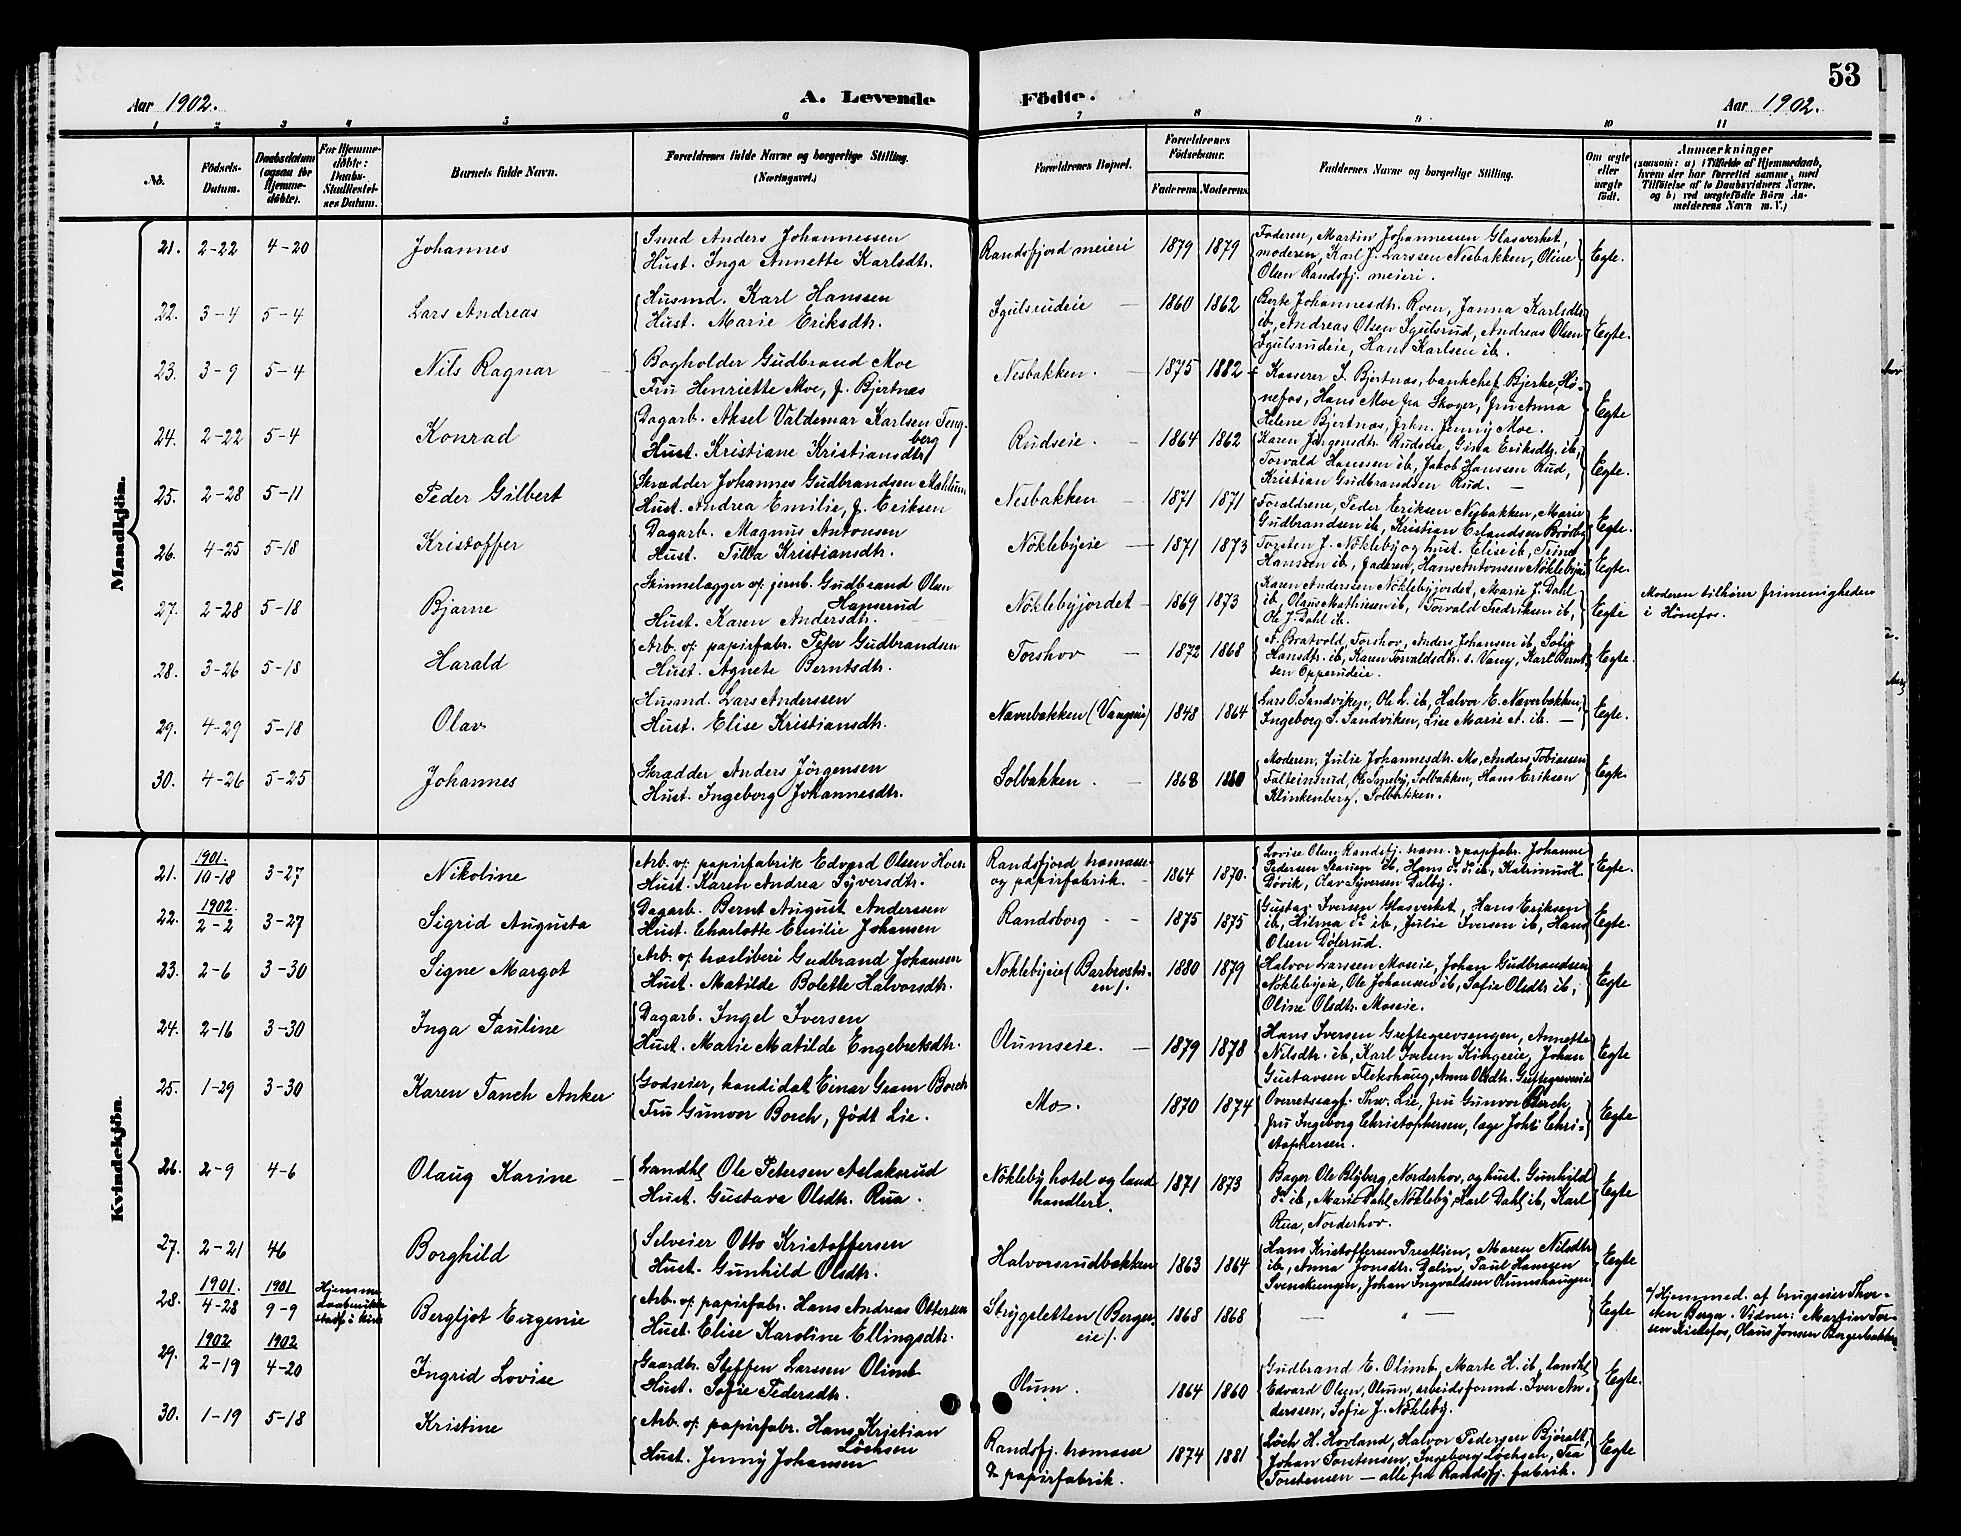 53
Aar 1902. A. Levende Födte. Aar 1902.
1 2 3 4 5 6 7 8 9 10 11
No. Födsels-Datum. Daabsdatum (ogsaa for Hjemmedöbte). For Hjemmedöbte: Daabs-Stadfæstelses Datum. Barnets fulde Navn. Forældrenes fulde Navne og borgerlige Stilling. (Næringsvei.) Forældrenes Bopæl. Forældrenes Födselsaar. Faderens. Moderens. Faddernes Navne og borgerlige Stilling. Om ægte eller uægte födt. Anmærkninger (saasom: a) i Tilfælde af Hjemmedaab, hvem der har forrettet samme, med Tilföielse af to Daabsvidners Navne, og b) ved uægtefödte Börn Anmelderens Navn m. V.)
Mandkjön.
21. 2-22 4-20 Johannes
Smed Anders Johannessen
Hust. Inga Annette Karlsdtr.
Randsfjord meieri 1879 1879
Faderen, Martin Johannesen Glasverket,
moderen, Karl J. Larssen Nesbakken, Oline
Olsen Randsfj. meieri.
Egte.
22. 3-4 5-4 Lars Andreas
Husmd. Karl Hanssen
Hust. Marie Eriksdtr.
Igulsrudeie 1860 1862
Berte Johannesdtr. Roen, Janna Karlsdtr
ib, Andreas Olsen Igulsrud, Andreas Olsen
Igulsrudeie, Hans Karlsen ib.
Egte.
23. 3-9 5-4 Nils Ragnar
Bogholder Gudbrand Moe
Fru Henriette Moe, f. Bjertnæs
Nesbakken. 1875 1882
Kasserer I. Bjertnæs, bankchef Bjerke, Hø-
nefos, Hans Moe fra Skoger, fru Anna
Helene Bjertnæs, frkn. Jenny Moe.
Egte
24. 2-22 5-4 Konrad
Dagarb. Aksel Valdemar Karlsen Teng-
berg
Hust. Kristiane Kristiansdtr
Rudseie. 1864 1862
Karen Jørgensdtr. Rudseie, Gina Eriksdtr. ib,
Torvald Hanssen ib, Jakob Hanssen Rud,
Kristian Gudbrandsen Rud.
Egte.
25. 2-28 5-11 Peder Gilbert
Skrædder Johannes Gudbrandsen Mæhlum
Hust. Andrea Emilie, f. Eriksen
Nesbakken 1871 1871
Forældrene, Peder Eriksen Nesbakken, Marie
Gudbrandsen ib, Kristian Erlandsen Brørby
Egte.
26. 4-25 5-18 Kristoffer
Dagarb. Magnus Antonsen
Hust. Tilla Kristiansdtr.
Nöklebyeie 1871 1873
Torsten J. Nökleby og hust. Elise ib, Trine
Hanssen ib, faderen, Hans Antonsen Nöklebyeie
Egte.
27. 2-28 5-18 Bjarne
Skinnelægger v. jernb. Gudbrand Olsen
Hanserud
Hust. Karen Andersdtr.
Nöklebyjordet 1869 1873
Karen Anderssen Nöklebyjordet, Marie J. Dahl
ib, Olaus Mathisen ib, Torvald Fredriksen ib,
Ole J. Dahl ib.
Egte
Moderen tilhører frimenigheden
i Hönefos.
28. 3-26 5-18 Harald
Arb. v. papirfabr. Peter Gudbrandsen
Hust. Agnete Berntsdtr.
Torshov 1872 1868
A. Bratvold, Torshov, Anders Johansen ib, Solig
Hansdtr. ib, Karen Torvaldsdtr. s. Vang, Karl Bernt-
sen Opperudeie.
Egte.
29. 4-29 5-18 Olav
Husmd. Lars Anderssen
Hust. Elise Kristiansdtr.
Næverbakken (Vangseie) 1848 1864
Lars O. Sandviken, Ole L. ib, Halvor E. Næverbakken,
Ingeborg S. Sandviken, Lise Marie A. ib.
Egte.
30. 4-26 5-25 Johannes
Skrædder Anders Jörgensen
Hust. Ingeborg Johannesdtr.
Solbakken. 1868 1880
Moderen, Julie Johannesdtr. Mo, Anders Tobiassen
Falteinsrud, Ole Smeby, Solbakken, Hans Eriksen
Klinkenberg, Solbakken.
Egte.
Kvindekjön.
21. 1901. 10-18 3-27 Nikoline
Arb. v. papirfabrik Edvard Olsen Hoen
Hust. Karen Andrea Syversdtr.
Randsfjord træmasse-
og papirfabrik. 1864 1870.
Lovise Olsen Randsfj. træm. & papfabr. Johanne
Pedersen ib, Hans do. ib,
Døvik, Olav Syversen Dalby.
Egte.
22. 1902. 2-2 3-27 Sigrid Augusta
Dagarb. Bernt August Anderssen
Hust. Charlotte Emilie Johansen
Randsborg 1875 1875
Gustav Iversen Glasverket, Hans Eriksen
ib, Hilma do ib, Julie Iversen ib, Hans
Olsen Dölerud.
Egte.
23. 2-6 3-30 Signe Margot
Arb. v. træsliberi Gudbrand Johansen
Hust. Matilde Bolette Halvorsdtr.
Nöklebyeie (Barbrostu-
en). 1880 1879
Halvor Larssen Moseie, Johan Gudbrandsen
Nöklebyeie, Ole Johansen ib, Sofie Olsdtr ib,
Oline Olsdtr. Moseie.
Egte
24. 2-16 3-30 Inga Pauline
Dagarb. Ingel Iversen
Hust. Marie Matilde Engebretsdtr.
Olumseie. 1879 1878
Hans Iversen Greftegrevsengen, Annette
Nilsdtr. ib, Karl Iversen Kingeeie, Johan
Gustavsen Flekshaug, Anne Olsdtr. Greftegreveie
Egte
25. 1-29 3-30 Karen Tanch Anker
Godseier, kandidat Einar Gram Borch
Fru Gunvor Borch, født Lie.
Mo. 1870 1874
Overretssagf. Thv. Lie, fru Gunvor Borch
fru Ingeborg Christophersen, læge Johs Chri-
stophersen.
Egte
26. 2-9 4-6 Olaug Karine
Landhl. Ole Petersen Aslakrud
Hust. Gustava Olsdtr. Rua.
Nökleby hotel og land
handleri. 1871 1873
Bager Ole Blyberg, Norderhov, og hust. Gunhild
do ib, Marie Dahl, Nökleby, Karl Dahl ib, Karl
Rua, Norderhov.
Egte
27. 2-21 46 Borghild
Selveier Otto Kristoffersen
Hust. Gunhild Olsdtr.
Halvorsrudbakken 1863 1864
Hans Kristoffersen Prestlien, Maren Nilsdtr
ib, Anna Jonsdtr. Dalin, Paul Hansen
Svenskengen, Johan Ingvaldsen Olumshaugen
Egte
28. 1901. 4-28 1901 9-9 Hjemme
daab stadf. i kirk Bergljot Eugenie
Arb. v. papirfabr. Hans Andreas Ottersen
Hust. Elise Karoline Ellingsdtr.
Strygsletten (Berger-
eie). 1868 1868
— " —
Egte
a/ Hjemmed. af brugseier Thor-
sten Berga. Vidner: Martin Tor-
sen Kistefos, Olaus Jonsen Bergerbakken
29. 1902 2-19 1902 4-20 Ingrid Lovise
Gaardbr. Steffen Larssen Olimb
Hust. Sofie Pedersdtr.
Olum. 1864 1860
Gudbrand E. Olimb, Marte H. ib, landhl.
Edvard Olsen, Olum, arbeidsformd. Iver An-
derssen, Sofie J. Nökleby.
Egte.
30. 1-19 5-18 Kristine
Arb. v. papirfabr. Hans Kristian
Löchsen
Hust. Jenny Johansen
Randsfj. træmasse
& papirfabrik. 1874 1881
Löch H. Hovland, Halvor Pedersen Björalt,
Johan Torstensen, Ingeborg Löchsen, Tea
Torstensen — alle fra Randsfj. fabrik.
Egte